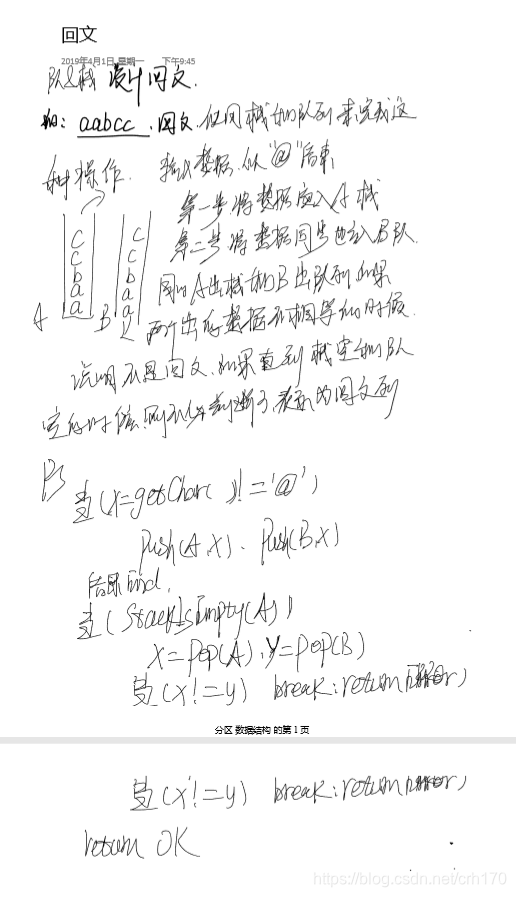 回文
2019年4月1日 星期一 下午9:45
队&栈 设计回文.
例: aabcc . 回文. 仅用栈和队列来完成这
种操作. 输入数据. 以"@"结束
第一步.将数据压入A栈
第二步.将数据同步也入B队.
C C
C C
b b
a a
a a
A B
同时A出栈和B出队列 如果
两个出的数据不相等的时候.
说明不是回文.如果直到 栈空和队
空的时候.则不必判断了.表示为回文列
当(x=getChar( )!='@')
Push(A,x). Push(B,x)
结束 End.
当(StackIsEmpty(A))
x=pop(A).y=pop(B)
当(x!=y) break:return error)
分区 数据结构 的第 1 页
当(x!=y) break:return error)
return OK
https://blog.csdn.net/crh170